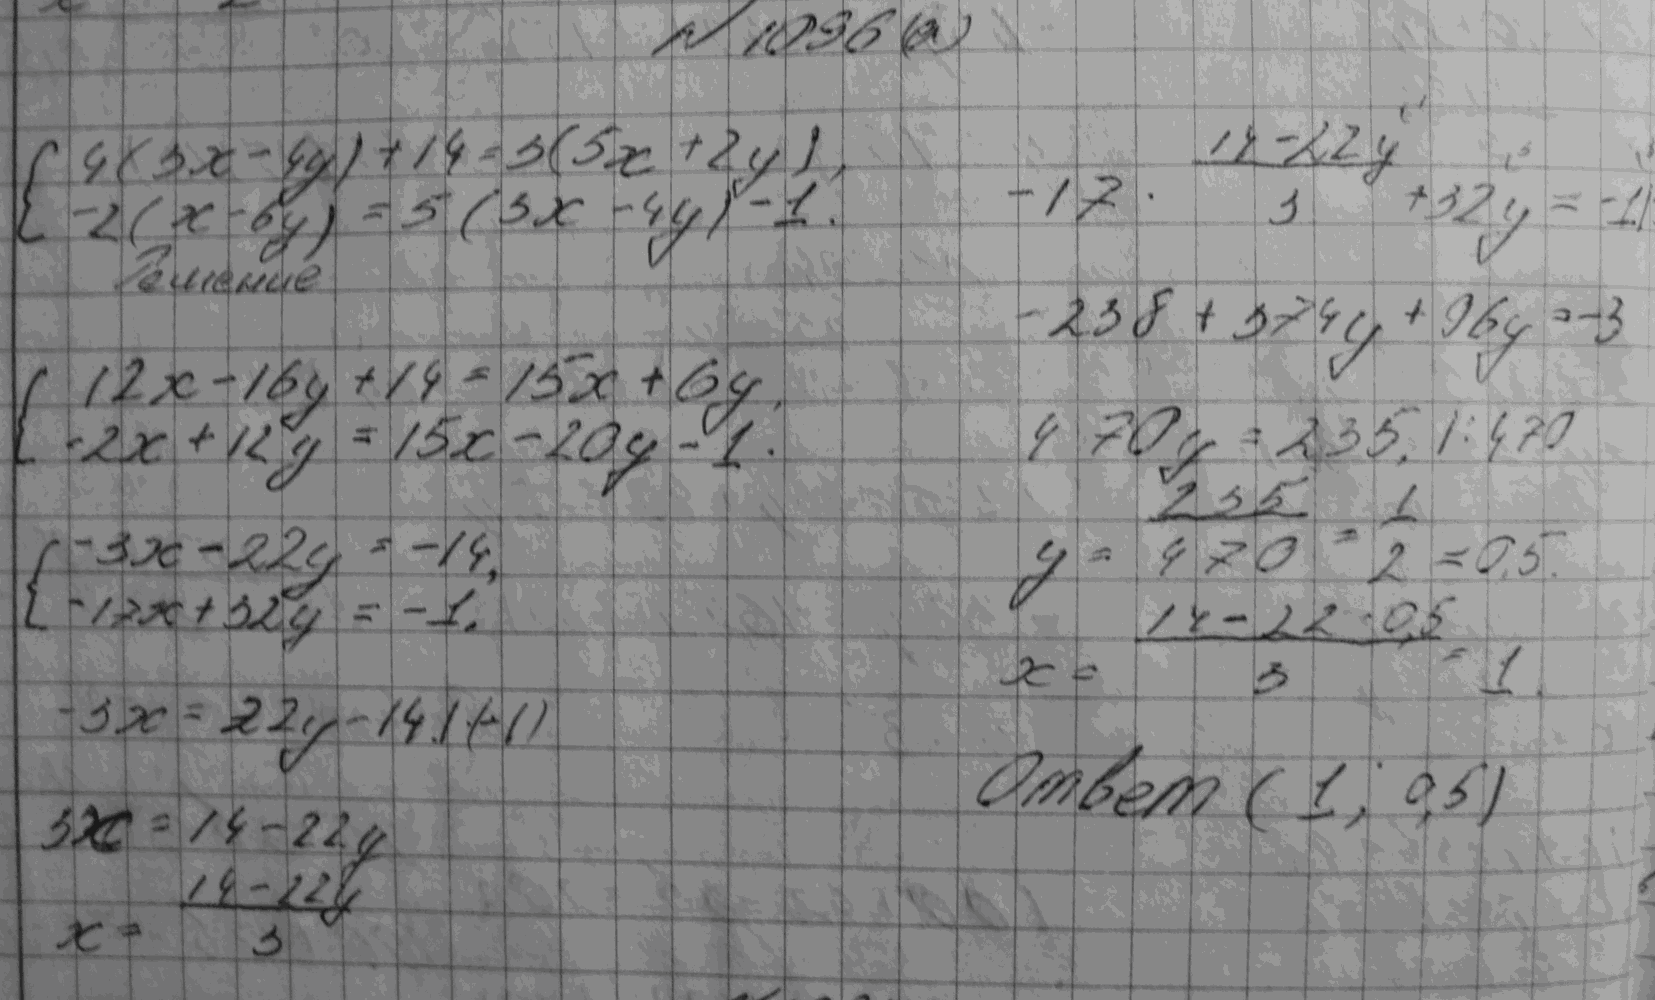 № 1096 (а)
4(3x-4y)+14=3(5x+2y),
-2(x-6y)=5(3x-4y)-1.
Решение
12x-16y+14=15x+6y,
-2x+12y=15x-20y-1.
-3x-22y=-14,
-17x+32y=-1.
-3x=22y-14 |·(-1)
3x=14-22y
x=\frac{14-22y}{3}
-17·\frac{14-22y}{3}+32y=-1 |
-238+374y+96y=-3
470y=235, |:470
y=\frac{235}{470}=\frac{1}{2}=0,5.
x=\frac{14-22·0,5}{3}=1.
Ответ (1; 0,5)